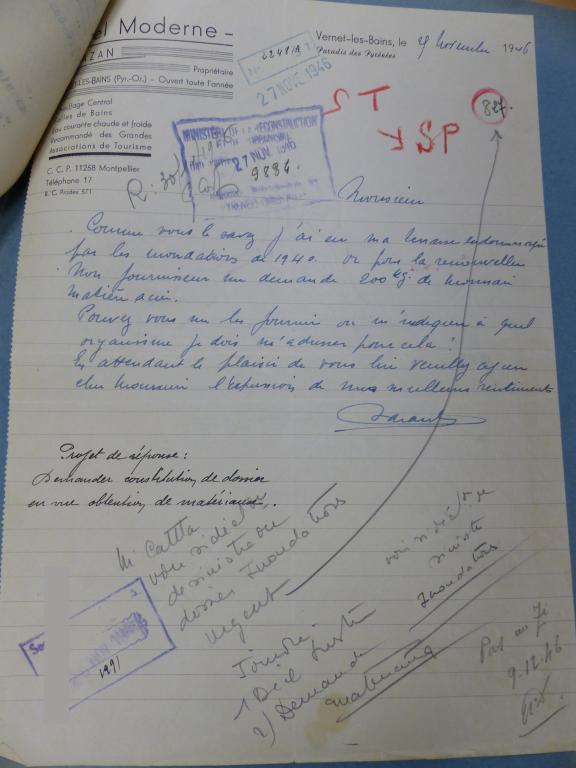 el Moderne -
ZAN
Propriétaire
LES-BAINS (Pyr.-Or.) — Ouvert toute l'année
ffage Central
lles de Bains
Eau courante chaude et froide
Recommandé des Grandes
Associations de Tourisme
C. C. P. 11258 Montpellier
Téléphone 17
R. C. Prades 571
Vernet-les-Bains, le
Novembre 1946
Paradis des Pyrénées
27 NOV 1946
827.
ST
SP
MINISTÈRE RECONSTRUCTION
27 NOV. 1946
9884
Monsieur
Comme vous le savez j'ai eu ma endommagé
par les inondations de 1940. or pour la renouveller
Mon fournisseur me demande 200 kgs de monnaie
matière acier.
Pouvez vous me les fournir ou m'indiquer à quel
organisme je dois m'adresser pour cela ?
En attendant le plaisir de vous lire veuillez agréer
cher monsieur l'expression de mes meilleurs sentiments
Projet de réponse :
Demander constitution de dossier
en vue obtention de matériaux.
M.
voir si décl
de sinistre ou
dossier Inondations
Urgent
voir si décl
sinistre
Inondations
Joindre
1) Décl
2) Demande
1991
Pas au
9-12-46